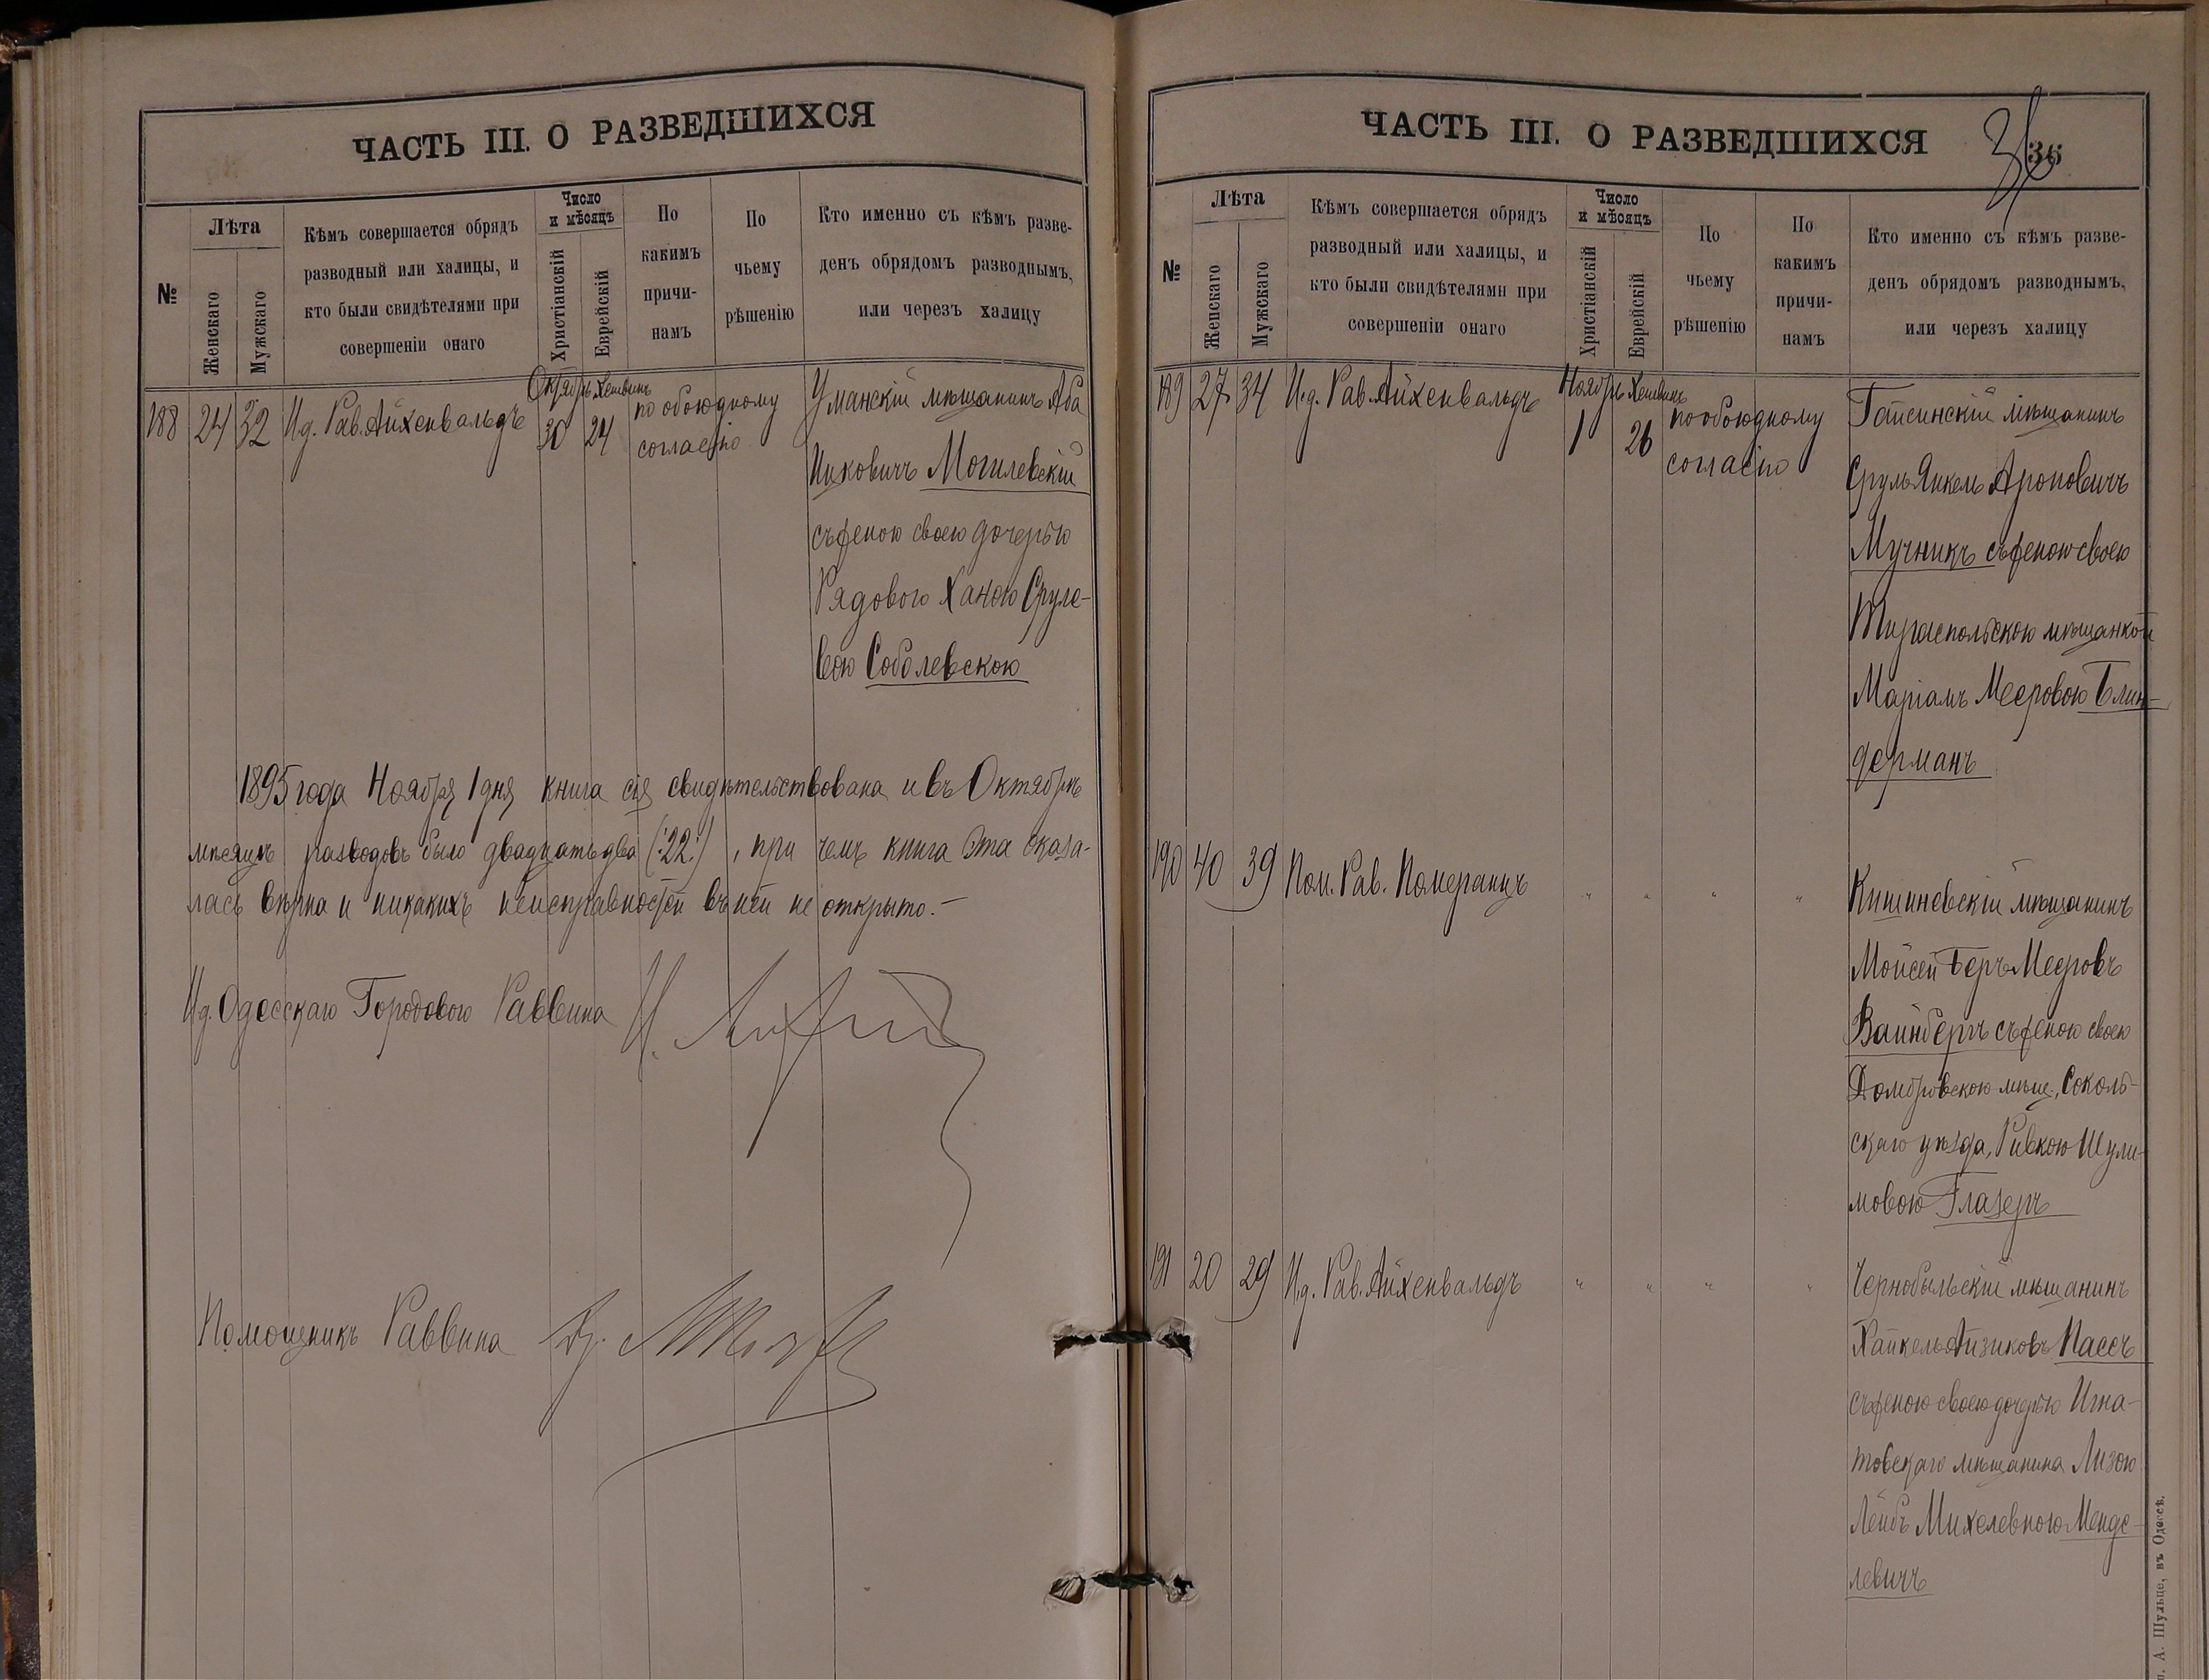 ЧАСТЬ III. О РАЗВЕДШИХСЯ
№
Лѣта
Женскаго
Мужскаго
Кѣмъ совершается обрядъ
разводный или халицы, и
кто были свидѣтелями при
совершеніи онаго
Число
и мѣсяцъ
Христіанскій
Еврейскій
По
какимъ
причи-
намъ
По
чьему
рѣшенію
Кто именно съ кѣмъ разве-
денъ обрядомъ разводнымъ,
или черезъ халицу
188 24 32 И.д. Рав. Айхенвальдъ Октябрь 30 Хешвинъ 24 по обоюдному
согласію
Уманскій мѣщанинъ Аба
Ицковичъ Могилевскій
съ женою своею дочерью
Рядового Ханою Сруле-
вою Соболевскою
1895 года Ноября 1 дня книга сія свидѣтельствована и въ Октябрѣ
мѣсяцѣ разводовъ было двадцать два (:22:), при чемъ книга эта оказа-
лась вѣрна и никакихъ неисправностей въ ней не открыто.—
И.д. Одесскаго Городового Раввина
Помощникъ Раввина
ЧАСТЬ III. О РАЗВЕДШИХСЯ
36
№
Лѣта
Женскаго
Мужскаго
Кѣмъ совершается обрядъ
разводный или халицы, и
кто были свидѣтелями при
совершеніи онаго
Число
и мѣсяцъ
Христіанскій
Еврейскій
По
чьему
рѣшенію
По
какимъ
причи-
намъ
Кто именно съ кѣмъ разве-
денъ обрядомъ разводнымъ,
или черезъ халицу
189 27 34 И.д. Рав. Айхенвальдъ Ноябрь 1 Хешвинъ 26 по обоюдному
согласію
Гайсинскій мѣщанинъ
Сруль Янкель Ароновичъ
Мучникъ съ женою своею
Тираспольскою мѣщанкой
Маріамъ Мееровою Блин-
дерманъ
190 40 39 Пом. Рав. Померанцъ " " " "
Кишиневскій мѣщанинъ
Мойсей Беръ Мееровъ
Вайнбергъ съ женою своею
Домбровскою мѣщ., Соколь-
скаго уѣзда, Ривкою Шули-
мовою Глазеръ
191 20 29 И.д. Рав. Айхенвальдъ " " " "
Чернобыльскій мѣщанинъ
Хайкель Айзиковъ Пассъ
съ женою своею дочерью Игна-
товскаго мѣщанина Лизою
Лейбъ Михелевною Менде-
левичъ
А. Шульце, въ Одессѣ.